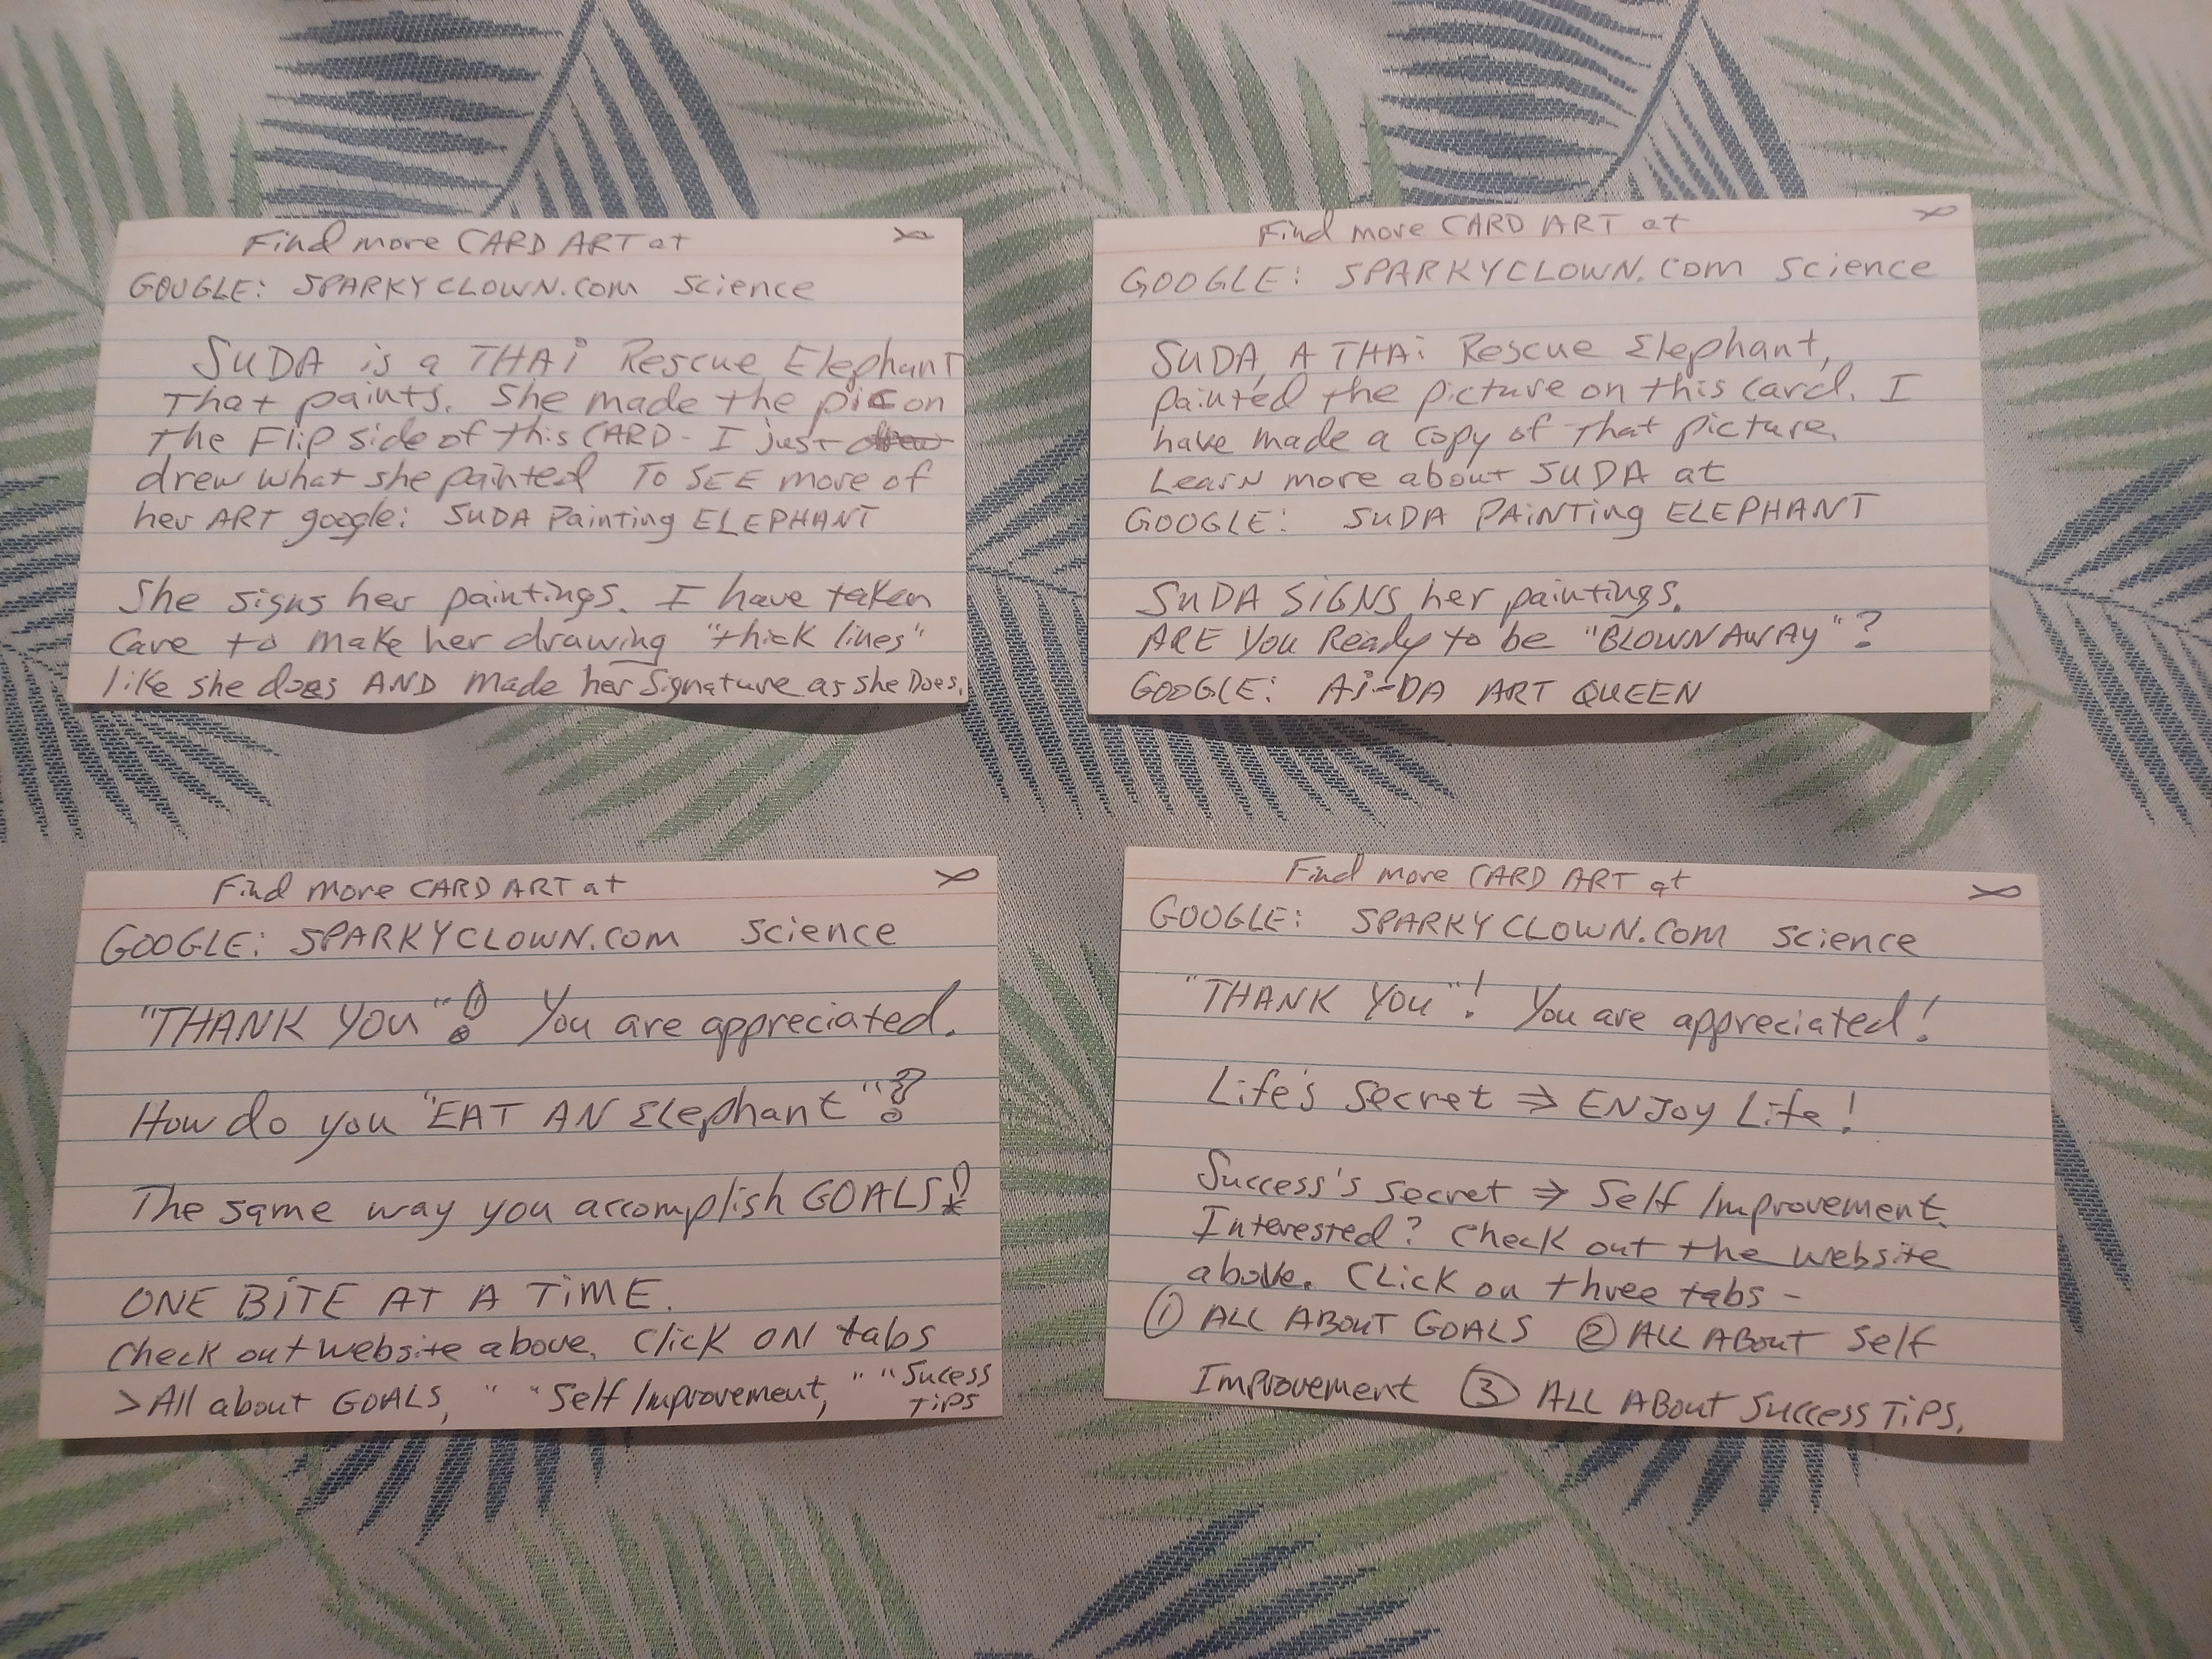 Find more CARD ART at
GOOGLE: SPARKYCLOWN.COM Science
SUDA is a THAi Rescue Elephant
That paints. She made the pic on
The Flip side of this CARD - I just drew
drew what she painted To SEE more of
her ART google: SUDA Painting ELEPHANT
She signs her paintings. I have taken
Care to make her drawing "thick lines"
like she does AND made her Signature as she Does.
Find more CARD ART at
GOOGLE: SPARKYCLOWN.COM Science
SUDA, A THAi Rescue Elephant,
painted the picture on this card. I
have made a copy of That picture.
Learn more about SUDA at
GOOGLE: SUDA PAiNTing ELEPHANT
SUDA SiGNS her paintings.
ARE You Ready to be "BLOWN AWAY"?
GOOGLE: Ai-DA ART QUEEN
Find more CARD ART at
GOOGLE: SPARKYCLOWN.COM Science
"THANK YOU"! You are appreciated.
How do you "EAT AN Elephant"?
The same way you accomplish GOALS!
ONE BiTE AT A TiME.
Check out website above. Click ON tabs
>All about GOALS," "Self Improvement," "Sucess
TiPS
Find more CARD ART at
GOOGLE: SPARKYCLOWN.COM Science
"THANK YOU"! You are appreciated!
Life's Secret ⇒ ENJOY Life!
Success's secret ⇒ Self Improvement.
Interested? Check out the website
above. CLick on three tabs -
① ALL ABOUT GOALS ② ALL ABOUT Self
Improvement ③ ALL ABOUT SUCCESS TiPS.